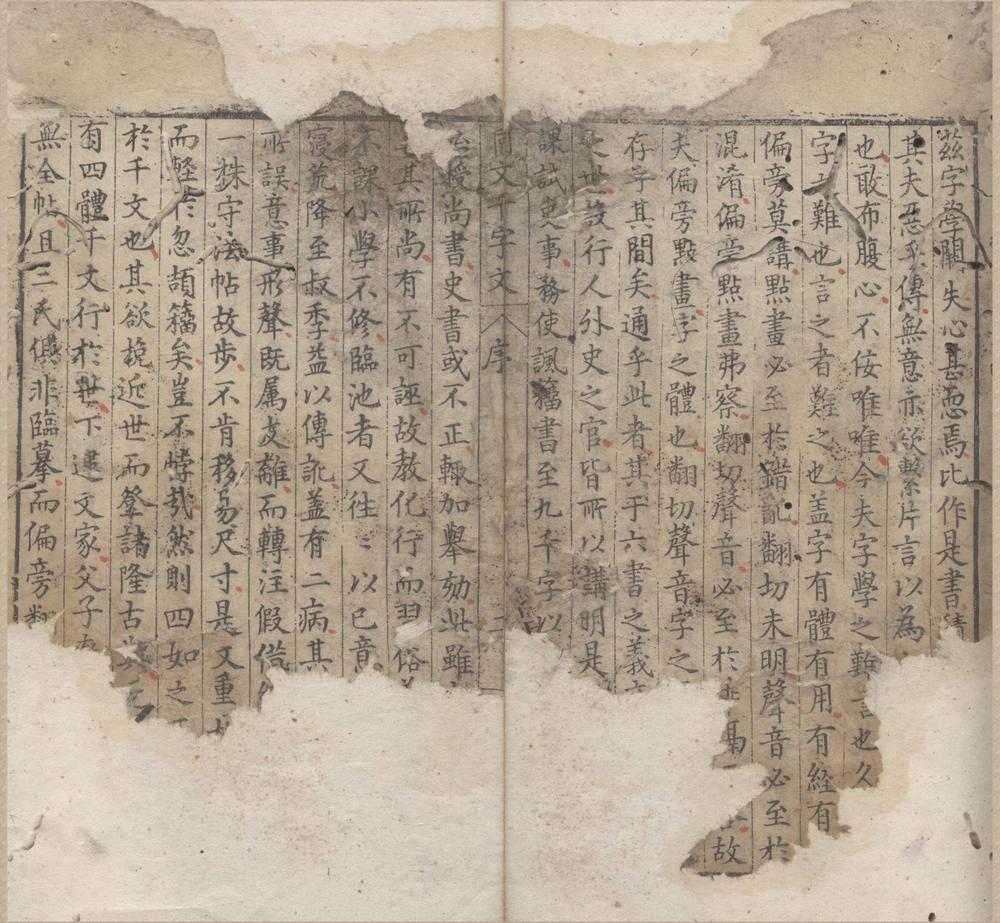 茲字學闕失心甚恧焉比作是書
其夫惡乎傳無意亦欲繫片言以為
也敢布腹心不佞唯唯今夫字學之難言也久
字之難也言之者難之也盖字有體有用有経有
偏旁莫講點畫必至於錯訛翻切未明聲音必至於
混淆偏旁點畫弗察翻切聲音必至於
故
夫偏旁點畫字之體也翻切聲音字之
存乎其間矣通乎此者其于六書之義
之世設行人外史之官皆所以講明是
課試吏事務使諷籀書至九千字以
同文千字文 序 二
授尚書史書或不正輙加舉劾此雖
其所尚有不可誣故教化行而習俗
不課小學不修臨池者又往〻以已意
寖荒降至叔季益以傳訛盖有二病其
所誤意事形聲既属支離而轉注假借
一株守法帖故步不肯移易尺寸是又重
而軽於忽頡籀矣豈不悖哉然則四如之
於千文也其欲挽近世而肇諸隆古
有四體千文行於世下逮文家父子
無全帖且三氏俱非臨摹而偏旁翻